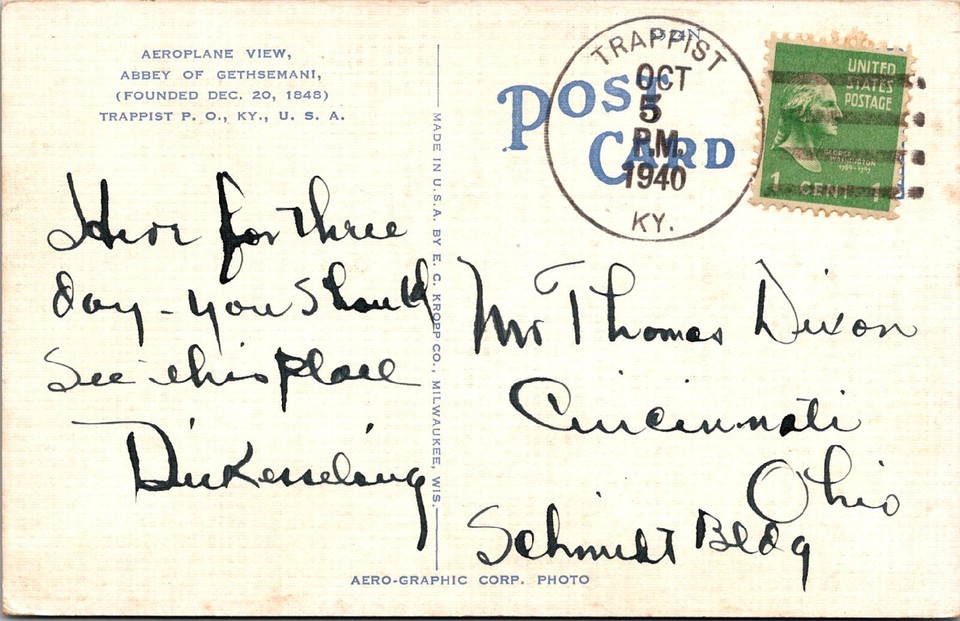 AEROPLANE VIEW,
ABBEY OF GETHSEMANI,
(FOUNDED DEC. 20, 1848)
TRAPPIST P. O., KY., U. S. A.
Here for three
day - you should
See this place
MADE IN U.S.A. BY E. C. KROPP CO., MILWAUKEE, WIS.
POST
CARD
TRAPPIST
OCT
5
P.M.
1940
KY.
UNITED
STATES
POSTAGE
GEORGE
WASHINGTON
1789-1797
1 CENT 1
Mr Thomas Dixon
Cincinnati
Ohio
Schmidt Bldg
AERO-GRAPHIC CORP. PHOTO